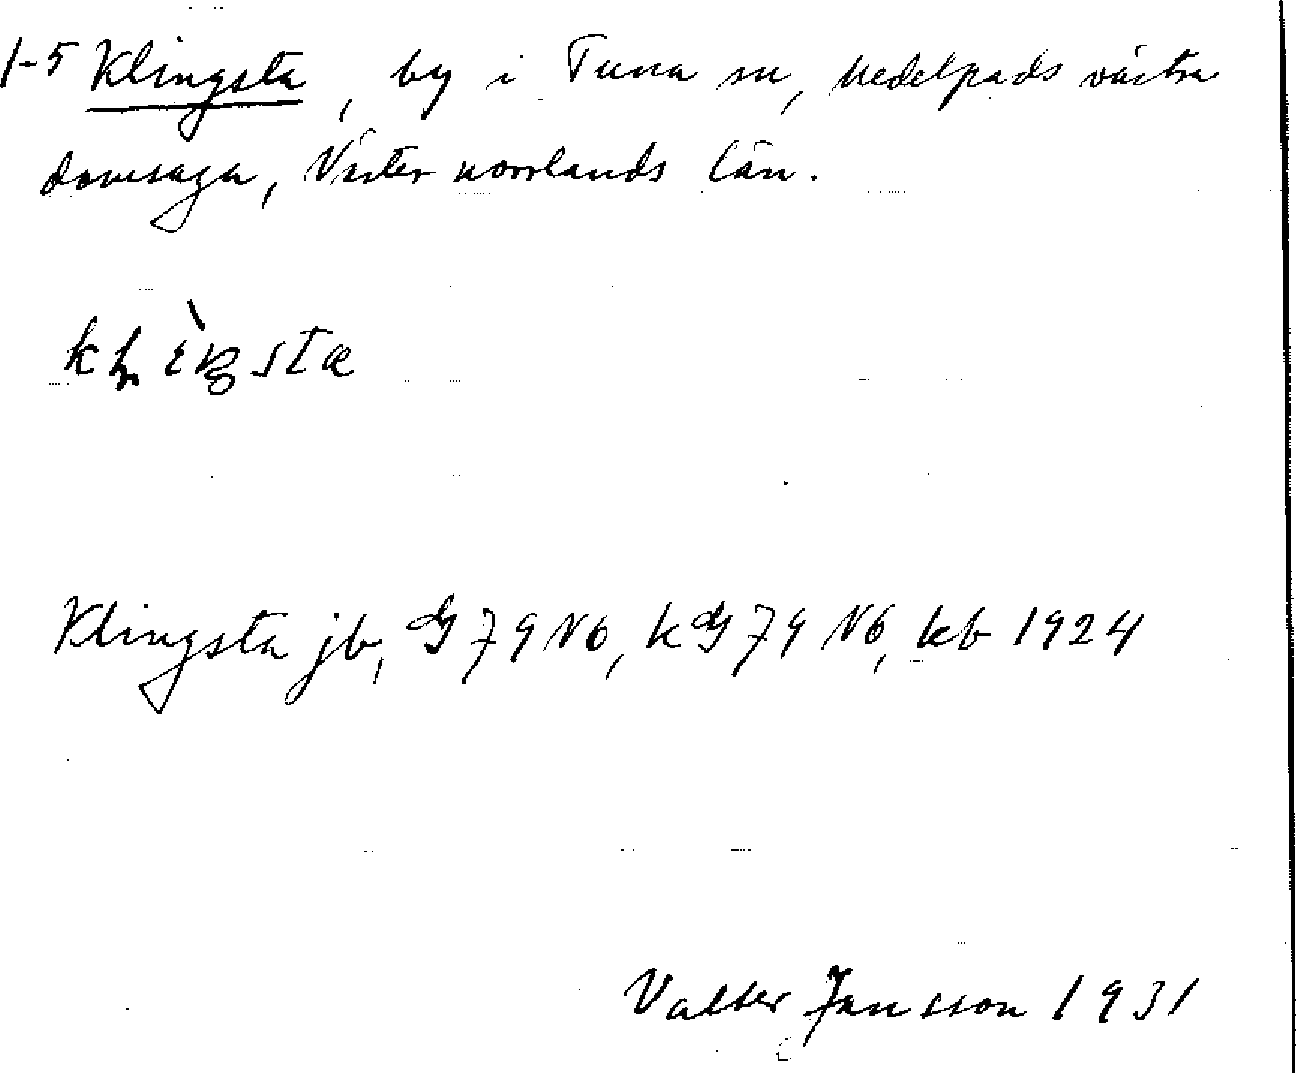 1-5 Klingsta, by i Tuna sn, Medelpads västra
domsaga, Västernorrlands län.
Klingsta jb, G 79 No, k G 79 No, kb 1924
Valter Jansson 1931